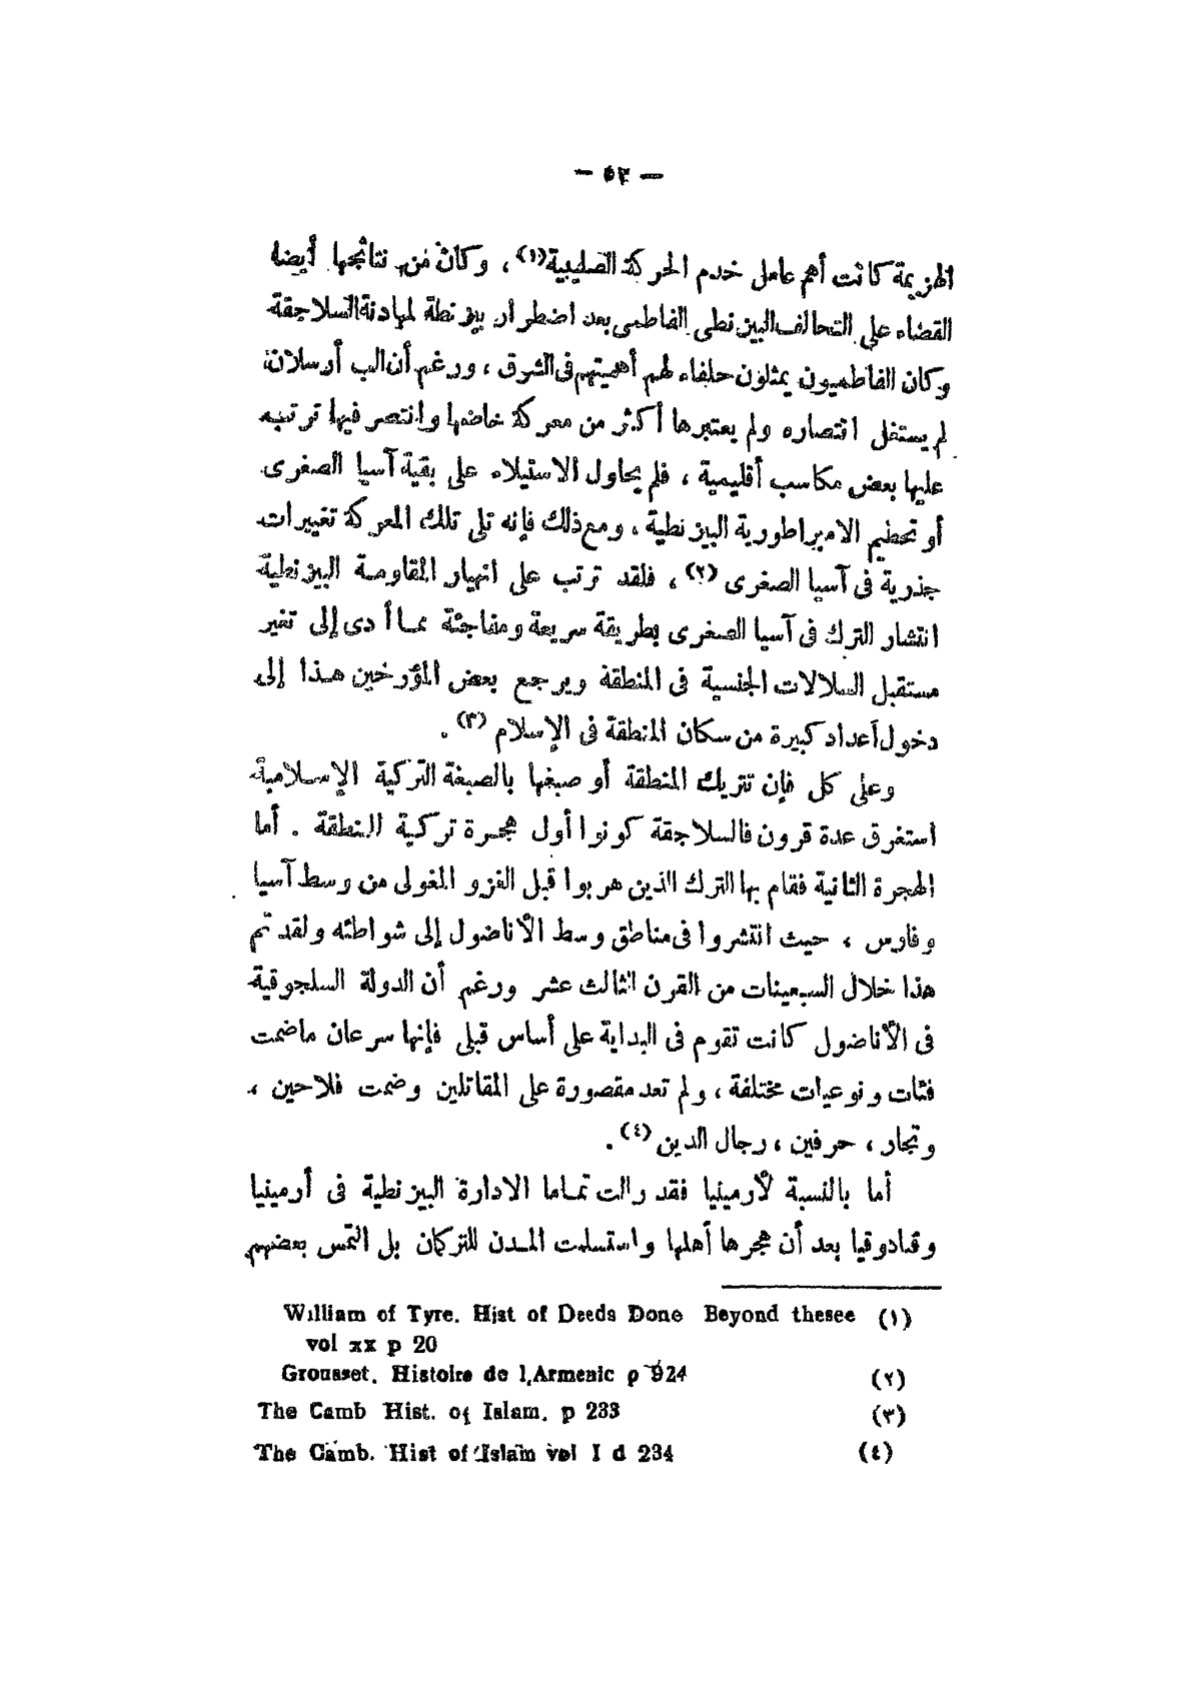 — ٥٣ —
الهزيمة كانت أهم عامل خدم الحركة الصليبية(١) ، وكان من نتائجها أيضا
القضاء على التحالف البيزنطى الفاطمى بعد اضطرار بيزنطة لمهادنة السلاجقة
وكان الفاطميون يمثلون حلفاء لهم أهميتهم فى الشرق ، ورغم أن الب أرسلان
لم يستغل انتصاره ولم يعتبرها أكثر من معركة خاضها وانتصر فيها ترتب
عليها بعض مكاسب أقليمية ، فلم يحاول الاستيلاء على بقية آسيا الصغرى
أو تحطيم الامبراطورية البيزنطية ، ومع ذلك فإنه تلى تلك المعركة تغييرات
جذرية فى آسيا الصغرى (٢) ، فلقد ترتب على انهيار المقاومة البيزنطية
انتشار الترك فى آسيا الصغرى بطريقة سريعة ومفاجئة مما أدى إلى تغير
مستقبل السلالات الجنسية فى المنطقة ويرجع بعض المؤرخين هذا إلى
دخول أعداد كبيرة من سكان المنطقة فى الإسلام (٣) .
وعلى كل فإن تتريك المنطقة أو صبغها بالصبغة التركية الإسلامية
استغرق عدة قرون فالسلاجقة كونوا أول هجرة تركية للمنطقة . أما
الهجرة الثانية فقام بها الترك الذين هربوا قبل الغزو المغولى من وسط آسيا
وفارس ، حيث انتشروا فى مناطق وسط الأناضول إلى شواطئه ولقد تم
هذا خلال السبعينات من القرن الثالث عشر ورغم أن الدولة السلجوقية
فى الأناضول كانت تقوم فى البداية على أساس قبلى فإنها سرعان ماضمت
فئات ونوعيات مختلفة ، ولم تعد مقصورة على المقاتلين وضمت فلاحين ،
وتجار ، حرفين ، رجال الدين (٤) .
أما بالنسبة لأرمينيا فقد زالت تماما الادارة البيزنطية فى أرمينيا
وقبادوقيا بعد أن هجرها أهلها واستسلمت المدن للتركمان بل التمس بعضهم
(١) William of Tyre. Hist of Deeds Done Beyond thesee
vol xx p 20
(٢) Grousset. Histoire de l,Armenic p 924
(٣) The Camb Hist. of Islam. p 233
(٤) The Camb. Hist of Islam vol I d 234